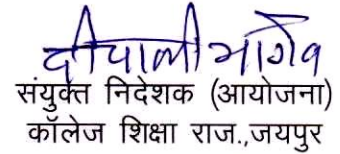 दीपाली भार्गव
संयुक्त निदेशक (आयोजना)
कॉलेज शिक्षा राज.,जयपुर